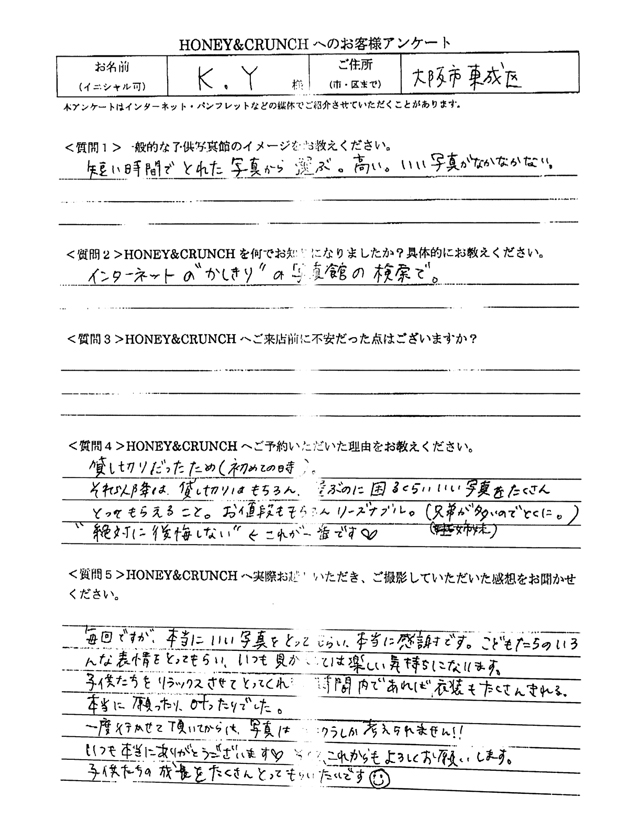 HONEY&CRUNCH へのお客様アンケート
お名前
(イニシャル可)
K.Y 様
ご住所
(市・区まで)
大阪市東成区
本アンケートはインターネット・パンフレットなどの媒体でご紹介させていただくことがあります。
<質問1> 一般的な子供写真館のイメージをお教えください。
短い時間でとれた写真から選ぶ。高い。いい写真がなかなかない。
<質問2>HONEY&CRUNCH を何でお知 になりましたか?具体的にお教えください。
インターネットの"かしきり"の写真館の検索で。
<質問3>HONEY&CRUNCH へご来店前に不安だった点はございますか?
<質問4>HONEY&CRUNCH へご予約いただいた理由をお教えください。
貸し切りだったため(初めての時)。
それ以降は、貸し切りはもちろん、選ぶのに困るくらいいい写真をたくさん
とってもらえること。お値段ももちろんリーズナブル。(兄弟が多いのでとくに。)
"絶対に後悔しない" ← これが一番です♡
(姉妹)
<質問5>HONEY&CRUNCH へ実際お起 いただき、ご撮影していただいた感想をお聞かせ
ください。
毎回ですが、本当にいい写真をとってもらい、本当に感謝です。こどもたちのいろ
んな表情をとってもらい、いつも見か ては楽しい気持ちになります。
子供たちをリラックスさせてとってくれ 時間内であれば、衣装もたくさんきれる。
本当に願ったり叶ったりでした。
一度行かせて頂いてからは、写真は クラしか考えられません!!
いつも本当にありがとうございます♡ これからもよろしくお願いします。
子供たちの成長をたくさんとってもらいたいです☺